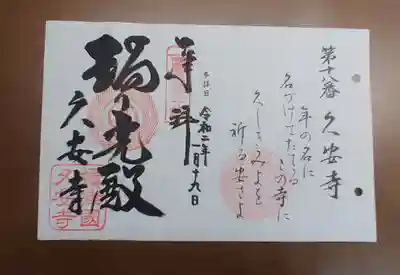 第十八番 久安寺
年の名に
名づけてたてる
この寺に
久しきみよを
祈る安さよ
参拝日 令和二年一月十九日
奉拝
瑠光殿
久安寺
久安寺